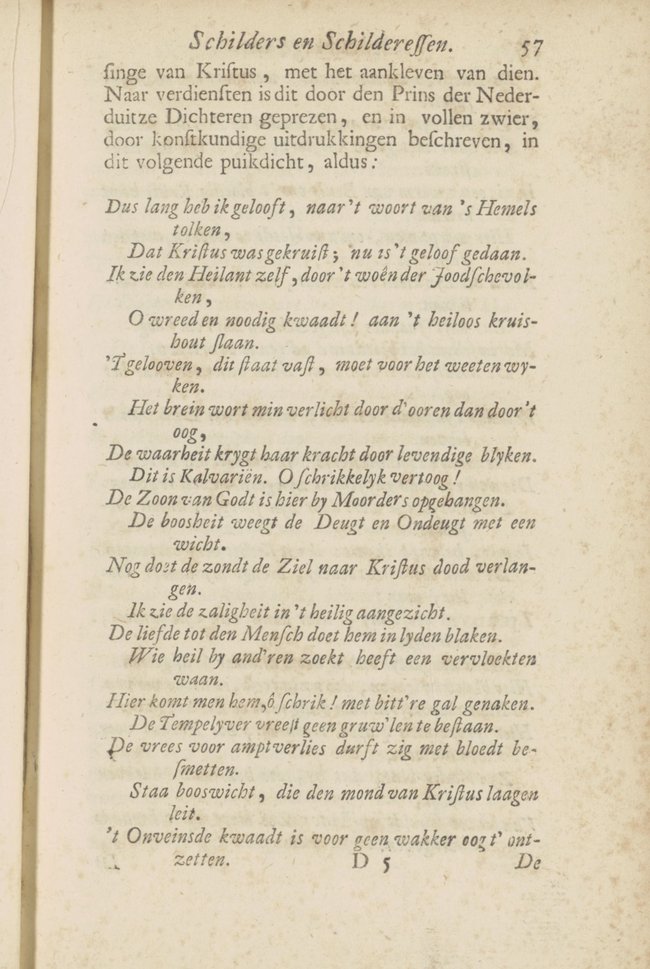 Schilders en Schildereſſen. 57
ſinge van Kriſtus, met het aankleven van dien.
Naar verdienſten is dit door den Prins der Neder-
duitze Dichteren geprezen, en in vollen zwier,
door konſtkundige uitdrukkingen beſchreven, in
dit volgende puikdicht, aldus:
Dus lang heb ik gelooft, naar 't woort van 's Hemels
tolken,
Dat Kriſtus was gekruiſt; nu is 't geloof gedaan.
Ik zie den Heilant zelf, door 't woên der Joodſche vol-
ken,
O wreed en noodig kwaadt! aan 't heiloos kruis-
hout ſlaan.
'T gelooven, dit ſtaat vaſt, moet voor het weeten wy-
ken.
Het brein wort min verlicht door d'ooren dan door 't
oog,
De waarheit krygt haar kracht door levendige blyken.
Dit is Kalvariën. O ſchrikkelyk vertoog!
De Zoon van Godt is hier by Moorders opgehangen.
De boosheit weegt de Deugt en Ondeugt met een
wicht.
Nog doet de zondt de Ziel naar Kriſtus dood verlan-
gen.
Ik zie de zaligheit in 't heilig aangezicht.
De liefde tot den Menſch doet hem in lyden blaken.
Wie heil by and'ren zoekt heeft een vervloekten
waan.
Hier komt men hem, ô ſchrik! met bitt're gal genaken.
De Tempelyver vreeſt geen gruw'len te beſtaan.
De vrees voor amptverlies durft zig met bloedt be-
ſmetten.
Staa booswicht, die den mond van Kriſtus laagen
leit.
't Onveinsde kwaadt is voor geen wakker oog t' ont-
zetten. D 5 De